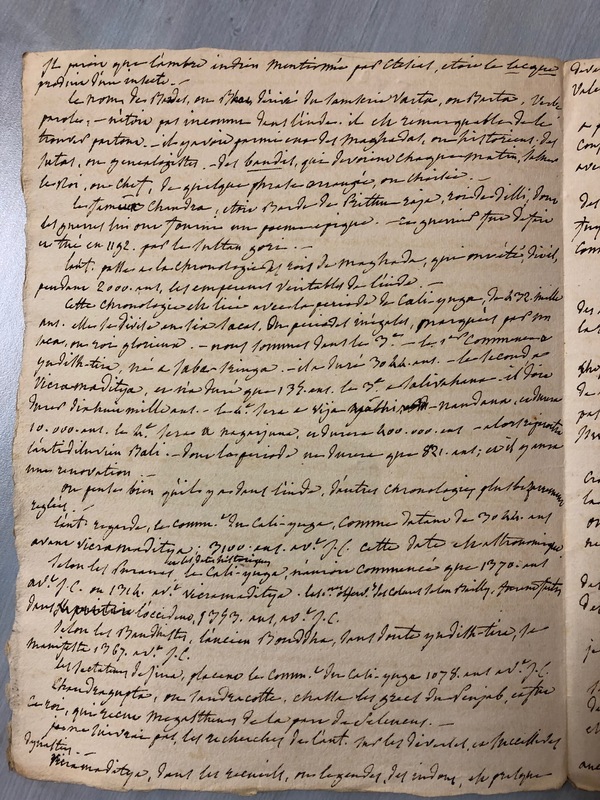 Il paroit que l'ambre indien mentionnée par Ctesias, etoit le lacque
produit d'un insecte. —
Le nom des Bardes, ou dérivé du samskrit Varta, ou Barta, Verbe
parole, — n'etoit pas inconnue dans l'inde. il est remarquable de le
trouver partout. — il y avoit parmi eux des Maghadas, ou historiens. des
sutas, ou genealogistes. — des bandis, qui devoient chaque matin, saluer
le Roi, ou Chef, de quelque phrase arrangée, ou choisie. —
le fameux Chandra, etoit Barde de Pitthu-raja, roi de Delli, dont
les guerres lui ont fourni un poeme epique. — ce guerrier fut defait
et tué en 1192. par le sultan gori. —
l'aut. passe a la chronologie des rois de Maghada, qui ont été, dit-il,
pendant 2000. ans, les empereurs veritables de l'inde. —
Cette chronologie est liée avec la periode de Cali-yuga, de 432. mille
ans. elle se divise en six sacas, ou periodes inégales, marquées par un
saca, ou roi glorieux. — nous sommes dans le 3e — le 1er commence a
yudisth-tira, né a — il a duré 3044. ans. — le second a
Vicramaditya, et n'a duré que 135. ans. le 3e a Salivahana. — il doit
durer dix huit mille ans. — le 4e sera a Vija nandana, et durera
10.000. ans. le 5e sera a nagarjuna, et durera 400.000. ans — alors
l'antédiluvien Bali. — dont la periode ne durera que 821. ans; et il y aura
une renovation. —
On pense bien qu'il y a dans l'inde, d'autres chronologies plus
reglées. —
l'aut. regarde, le comm.t du Cali-yuga, comme datant de 3044. ans
avant Vicramaditya; 3100. ans. av.t J.C. cette date est astronomique
Selon les Puranas, les dates historiques le Cali-yuga, n'auroit commencé que 1370. ans
av.t J.C. ou 1314. av.t Vicramaditya. les selon Bailly, furent faites
dans l'occident, 1353. ans, av.t J.C.
Selon les Bouddhistes, l'ancien Bouddha, sans doute yudisth-tira, se
manifeste 1367. av.t J.C.
les sectateurs de Jina, placent le comm.t du Cali-yuga 1078. ans av.t J.C.
Chandragupta, ou Sandracotte, chassa les grecs du Penjab, c'est
ce roi, qui reçut Megasthenes de la part de Seleucus. —
je ne suivrai pas, les recherches de l'aut. sur les diverses, et successives
dynasties. —
Vicramaditya, dans les recueils, ou legendes, des indous, est presque